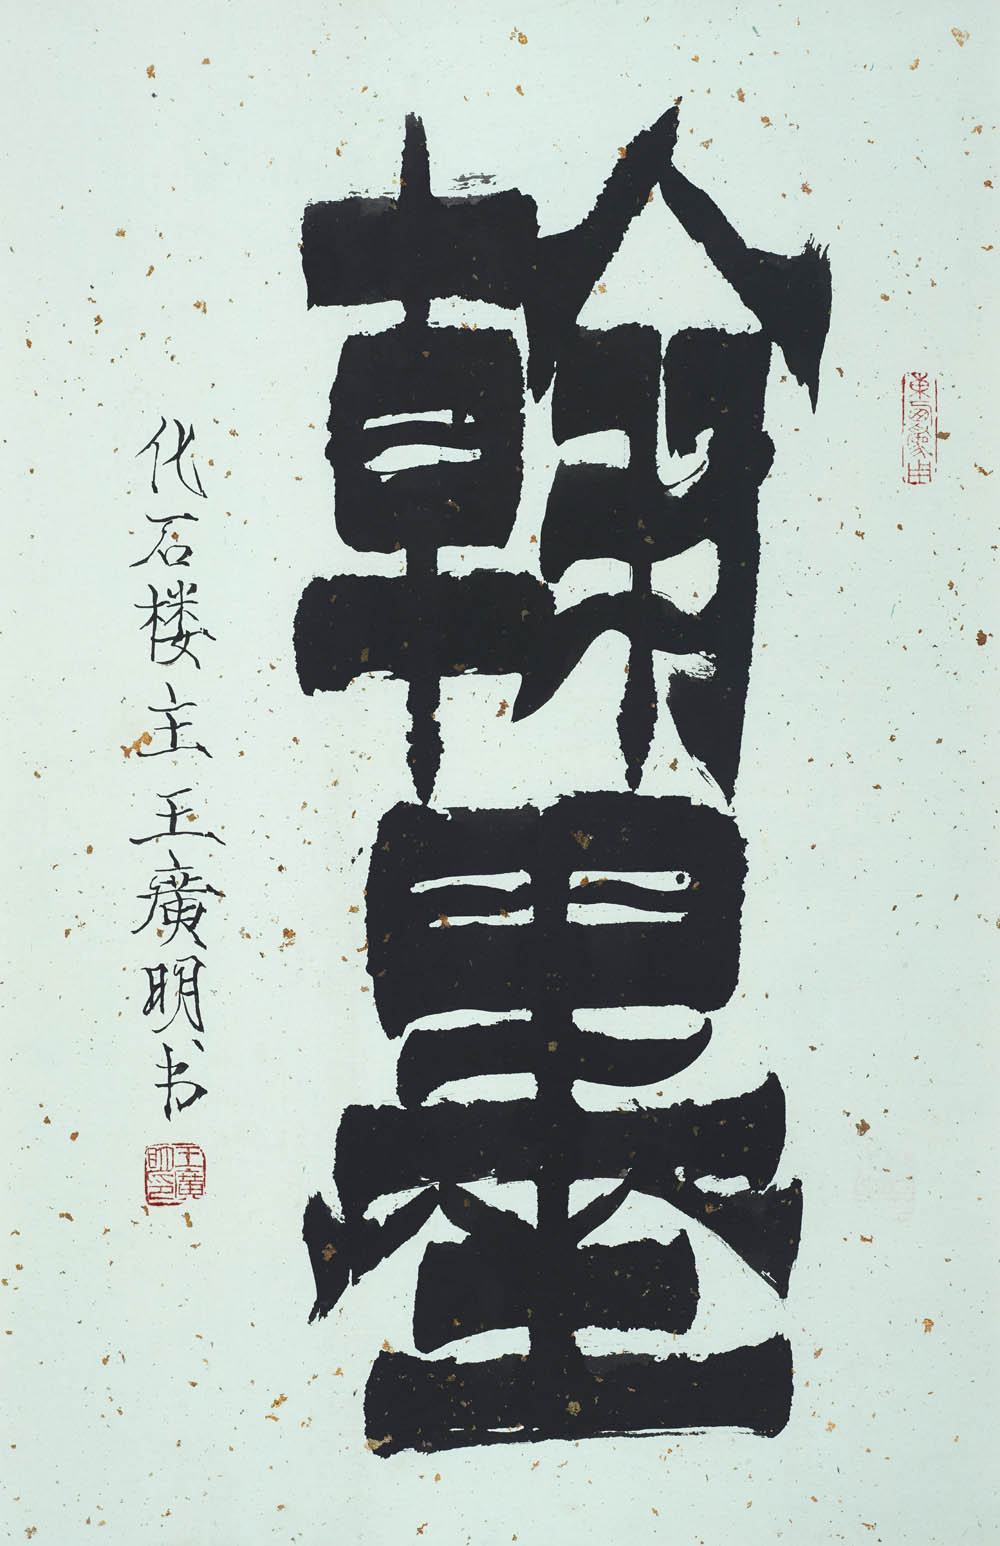 翰墨
代石楼主王廣明书
王廣明印